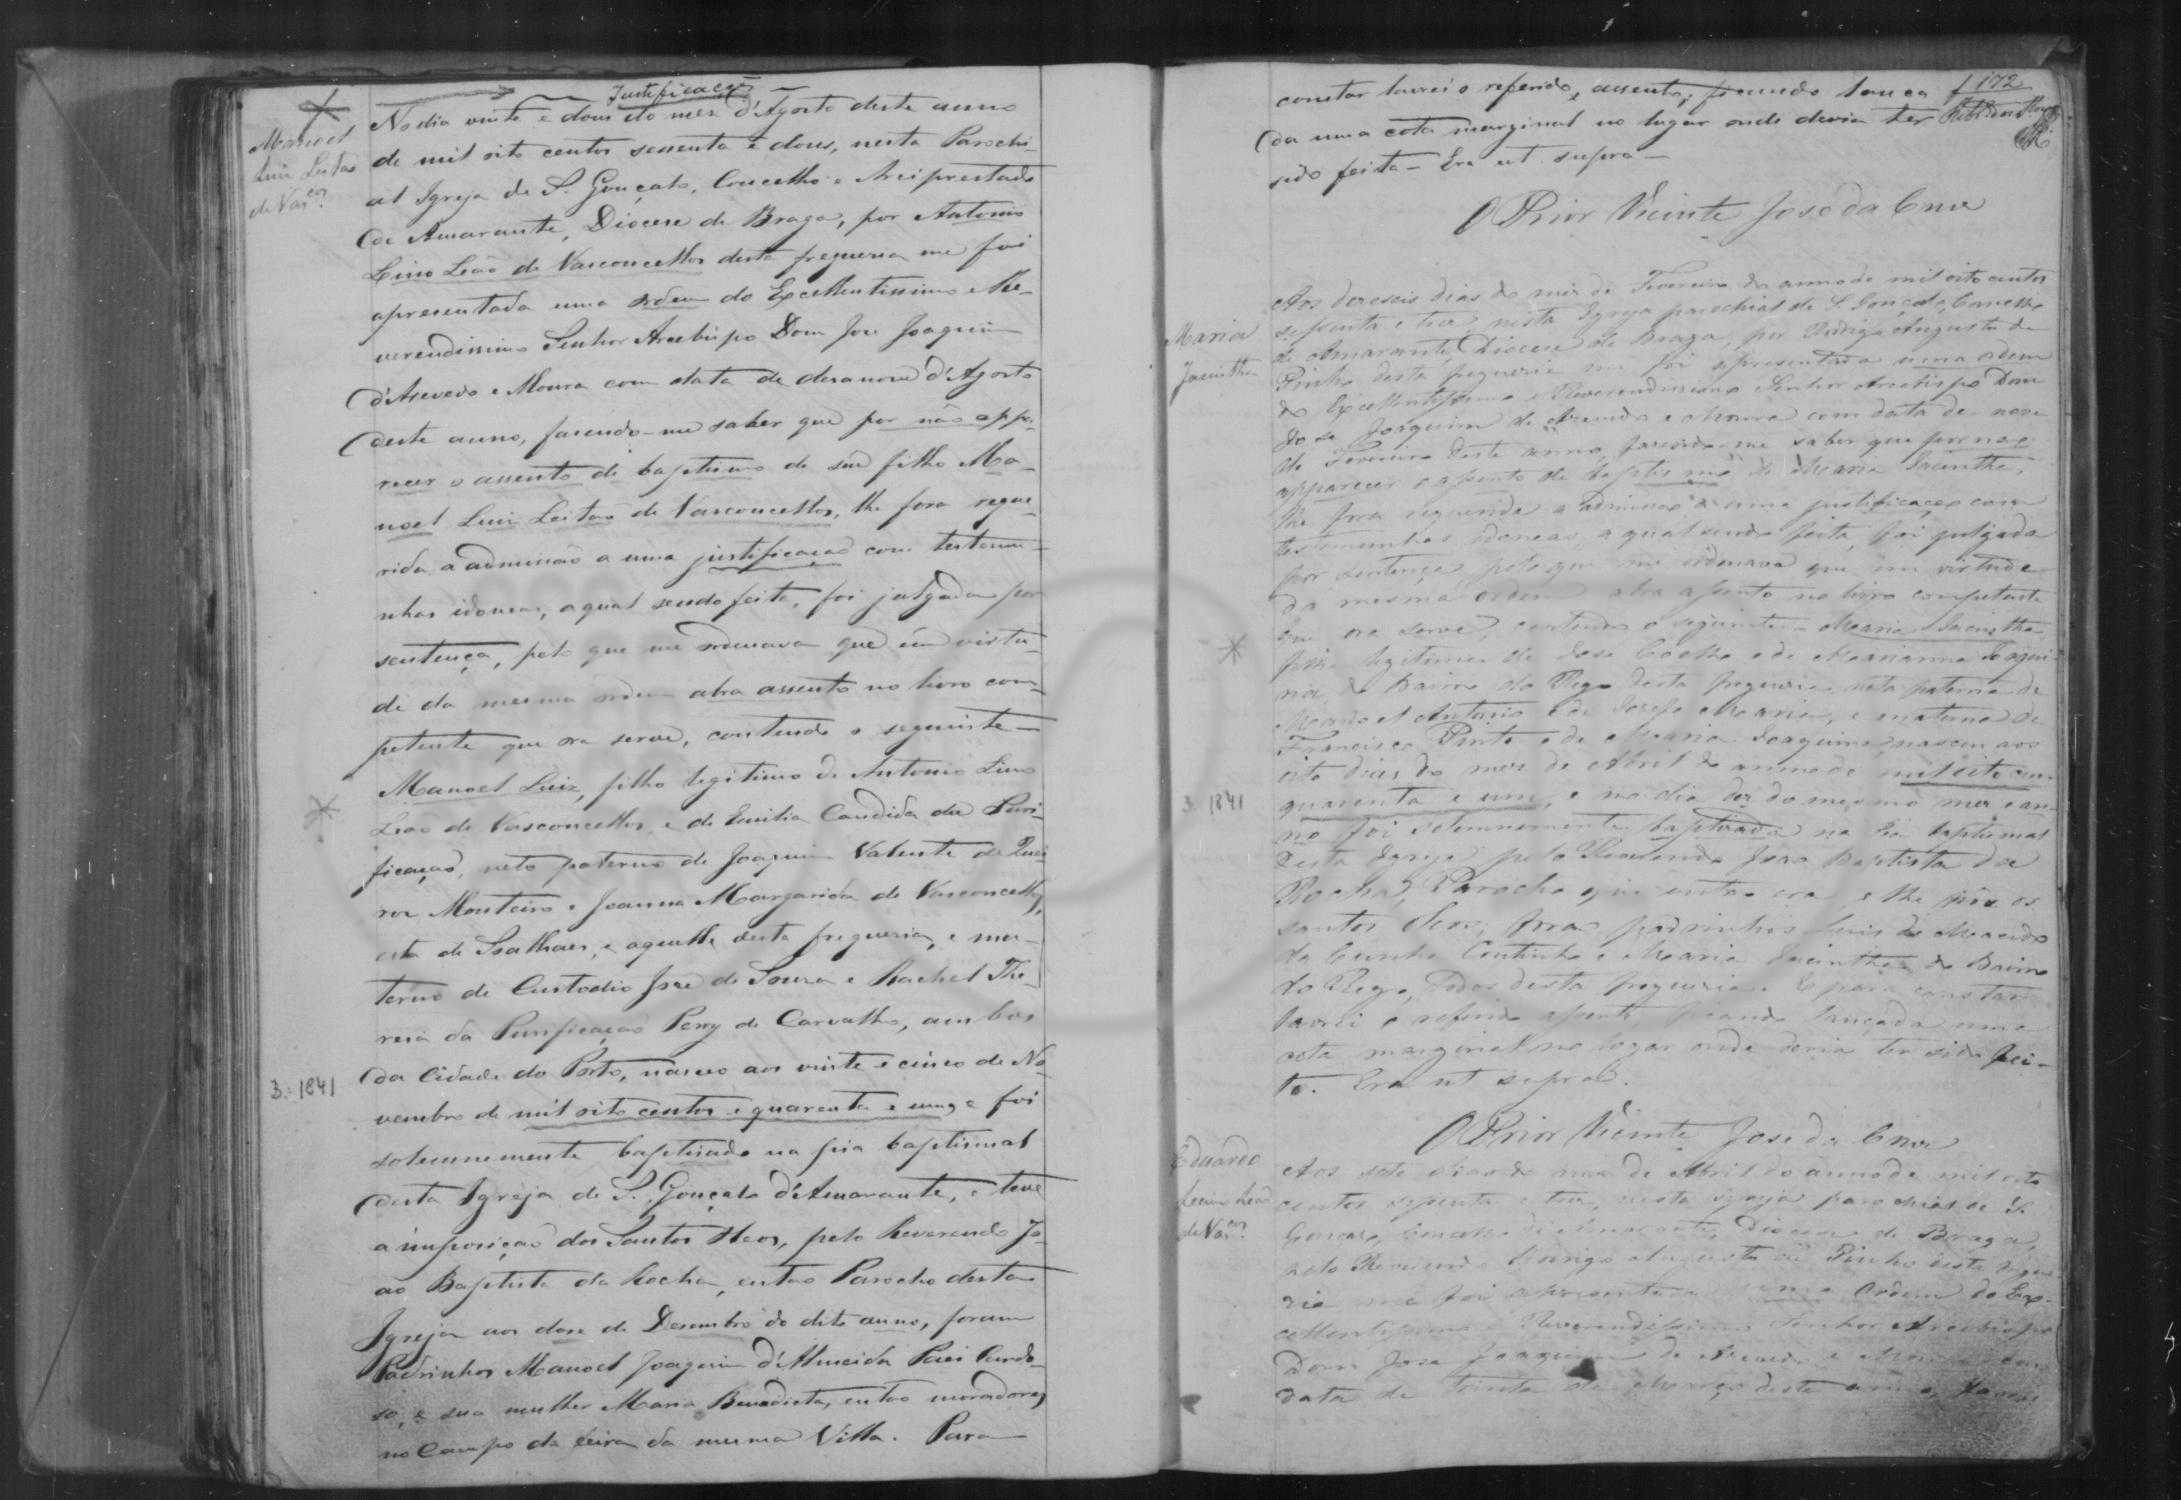 Justificação
Manoel
Luiz Leitão
de Vas.cos
No dia vinte e dous do mez d'Agosto deste anno
de mil oito centos sessenta e dous, nesta Parochi-
al Igreja de S. Gonçalo, Concelho e Arciprestado
de Amarante, Diocese de Braga, por Antonio
Lino Leão de Vasconcellos desta freguesia me foi
apresentada uma ordem do Excellentissimo e Re-
verendissimo Senhor Arcebispo Dom José Joaquim
d'Asevedo e Moura com data de desanove d'Agosto
deste anno, fasendo-me saber que por não appa-
recer o assento de baptismo de seu filho Ma-
noel Luiz Leitão de Vasconcellos, lhe fora reque-
rida a admissão a uma justificação com testemu-
nhas idoneas, a qual sendo feita, foi julgada por
sentença, pelo que me ordenava que em virtu-
de da mesma ordem abra assento no livro com-
petente que ora serve, contendo o seguinte —
Manoel Luiz, filho legitimo de Antonio Lino
Leão de Vasconcellos, e de Emilia Candida da Puri-
ficação, neto paterno de Joaquim Valente de Quei
roz Monteiro e Joanna Margarida de Vasconcellos,
esta de Soalhaes, e aquelle desta freguesia, e ma-
terno de Custodio José de Sousa e Rachel The-
resa da Purificação Perry de Carvalho, ambos
da Cidade do Porto, nasceo aos vinte e cinco de No-
vembro de mil oito centos e quarenta e um, e foi
solemnemente baptisado na pia baptismal
desta Igreja de S. Gonçalo d'Amarante, e teve
a imposição dos Santos Oleos, pelo Reverendo Jo-
ao Baptista da Rocha, entao Parocho desta
Igreja aos dose de Desembro do dito anno, foram
Padrinhos Manoel Joaquim d'Almeida Paes Cardo-
so, e sua mulher Maria Benedicta, entao moradores
no Campo da feira da mesma Villa. Para
3. 1841
172
constar lavrei o referido assento, ficando lança
da uma cota marginal no lugar onde devia ter
sido feito — Era ut supra —
O Prior Vicente José da Cruz
Maria
Jacintha
Aos deseseis dias do mez de Fevereiro do anno de mil oito centos
septenta e trez, nesta Igreja parochial de S. Gonçalo, Concelho
de Amarante, Diocese de Braga, por Rodrigo Augusto de
Pinho desta freguesia me foi apresentada uma ordem
do Excellentissimo e Reverendissimo Senhor Arcebispo Dom
José Joaquim de Azevedo e Moura com data de nove
de Fevereiro deste anno, fasendo-me saber que por não
apparecer o assento de baptismo de Maria Jacintha,
lhe fora requerida a admissão a uma justificação com
testemunhas idoneas, a qual sendo feita, foi julgada
por sentença, pelo que me ordenava que em virtude
da mesma ordem abra assento no livro competente
que ora serve, contendo o seguinte — Maria Jacintha,
filha legitima de José Coelho e de Marianna Joaqui-
na do Bairro do Rego desta freguesia, neta paterna de
Manoel Antonio e de Josefa Maria, e materna de
Francisco Pinto e de Maria Joaquina, nasceu aos
oito dias do mez de Abril do anno de mil oito cen-
quarenta e um, e no dia dez do mesmo mez e an-
no foi solemnemente baptisada na pia baptismal
desta Igreja pelo Reverendo João Baptista da
Rocha, Parocho que então era, e lhe pôs os
santos oleos; foram padrinhos Luis de Macedo
da Cunha Coutinho e Maria Jacintha do Bairro
do Rego, todos desta freguesia. E para constar
lavrei o referido assento ficando lançada uma
cota marginal no logar onde devia ter sido fei-
to. Era ut supra.
3. 1841
O Prior Vicente José da Cruz
Eduardo
Leão
de Vas.cos
Aos sete dias do mez de Abril do anno de mil oito
centos septenta e trez, nesta Igreja parochial de S.
Gonçalo, Concelho de Amarante, Diocese de Braga,
pelo Reverendo Rodrigo Augusto de Pinho desta fregue-
sia me foi apresentada uma Ordem do Exc-
cellentissimo e Reverendissimo Senhor Arcebispo
Dom José Joaquim de Azevedo e Moura com
data de trinta de Março deste anno, fasen